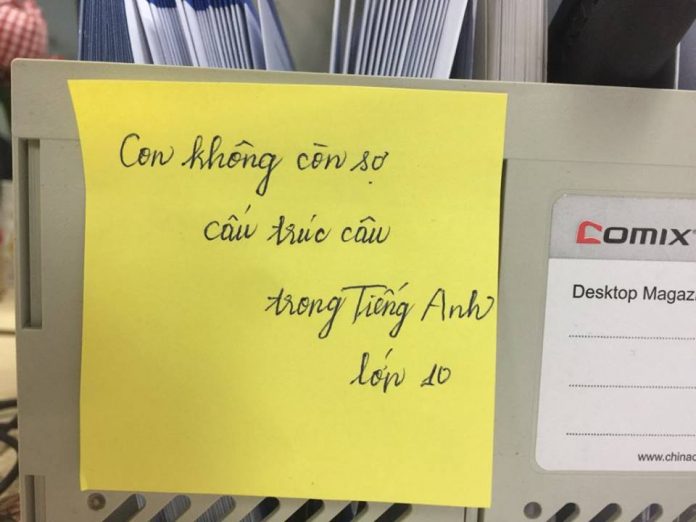 Con không còn sợ
cấu trúc câu
trong Tiếng Anh
lớp 10
COMIX
Desktop Magaz
www.chinac